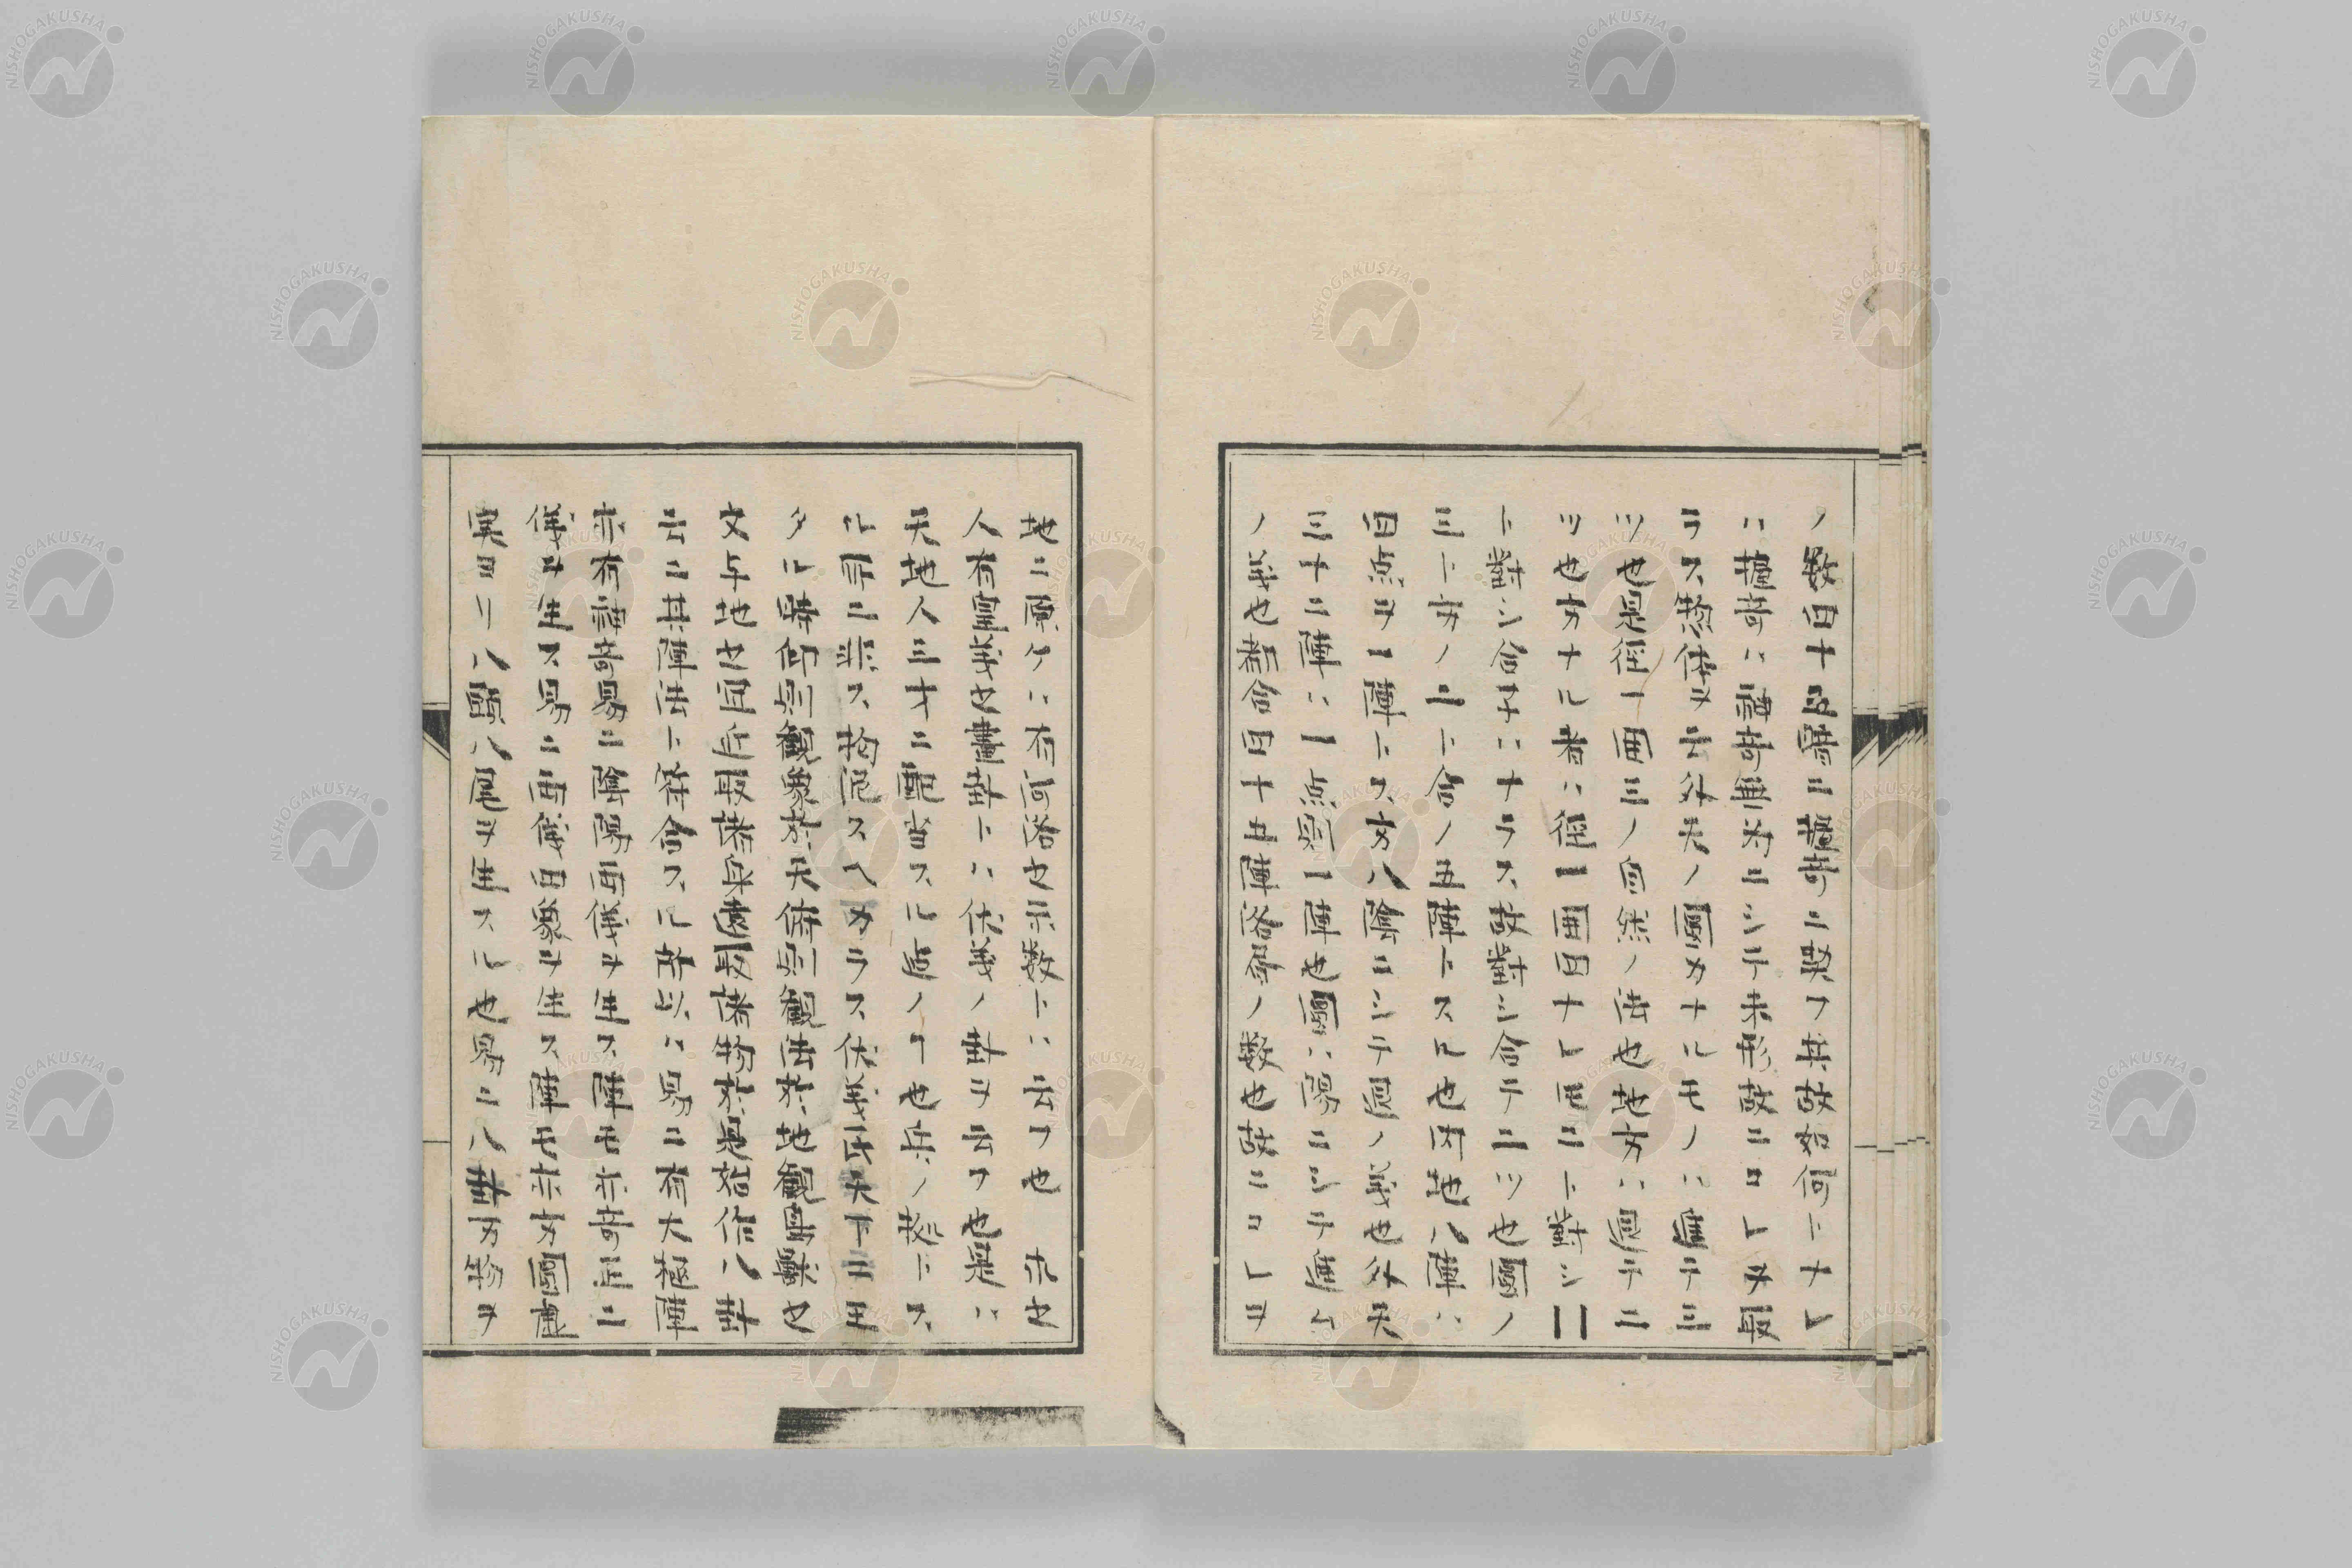 ノ数四十五陽ニ握奇ニ契フ其故如何トナレ
ハ握奇ハ諸奇無為ニシテ未形故ニコレヲ取
ラス惣体ヲ云外天ノ圓カナルモノハ廬テ三
ツ也是径一囲三ノ自然ノ法也地方ハ虚テ二
ツ也方ナル者ハ径一囲四ナレ圧ニト對シ二
ト對シ合子ハナラス故對シ合テ二ツ也圓ノ
三ト方ノ二ト合ノ五陣トスル也内地八陣ハ
四点ヲ一陣トス方八陰ニシテ虚ノ義也外天
三十二陣ハ一点則一陣也圓ハ陽ニシテ実ム
ノ義也都合四十五陣洛書ノ数也故ニコレヲ
地ニ原クハ有河洛也示数トハ云フ也 示也
人有皇義也畫卦トハ伏義ノ卦ヲ云フ也是ハ
天地人三才ニ配当スル迄ノ丁也兵ノ據トス
ル事ニ非ス拘泥スヘカラス伏義氏天下ニ王
タル時仰則観象於天俯則観法於地観鳥獣也
文与地也宜近取諸身遠取諸物於是始作八卦
云コ其陣法ト符合スル所以ハ易ニ有大極陣
亦有諸奇易ニ陰陽両儀ヲ生ス陣モ亦奇正ニ
儀ヲ生ス易ニ両儀四象ヲ生ス陣モ亦方圓虚
実ヨリ八頭八尾ヲ生スル也易ニ八卦万物ヲ
NISHOGAKUSHA